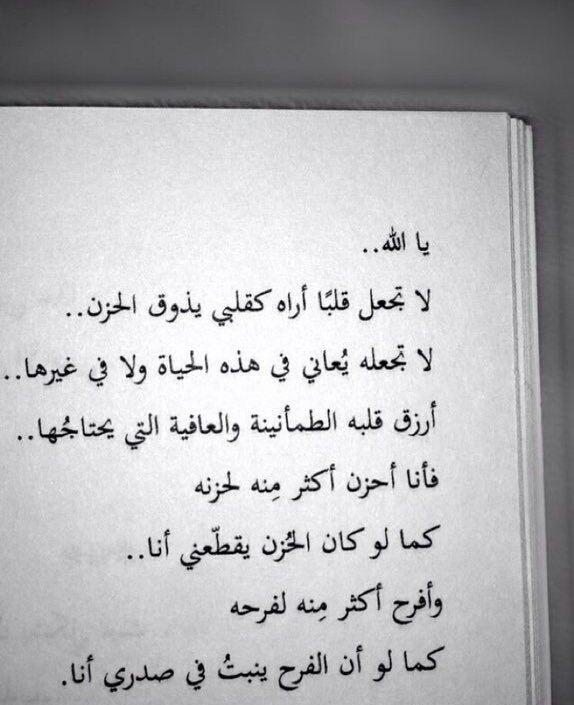 يا الله..
لا تجعل قلبًا أراه كقلبي يذوق الحزن..
لا تجعله يُعاني في هذه الحياة ولا في غيرها..
أرزق قلبه الطمأنينة والعافية التي يحتاجُها..
فأنا أحزن أكثر مِنه لحزنه
كما لو كان الحُزن يقطّعني أنا..
وأفرح أكثر مِنه لفرحه
كما لو أن الفرح ينبتُ في صدري أنا.